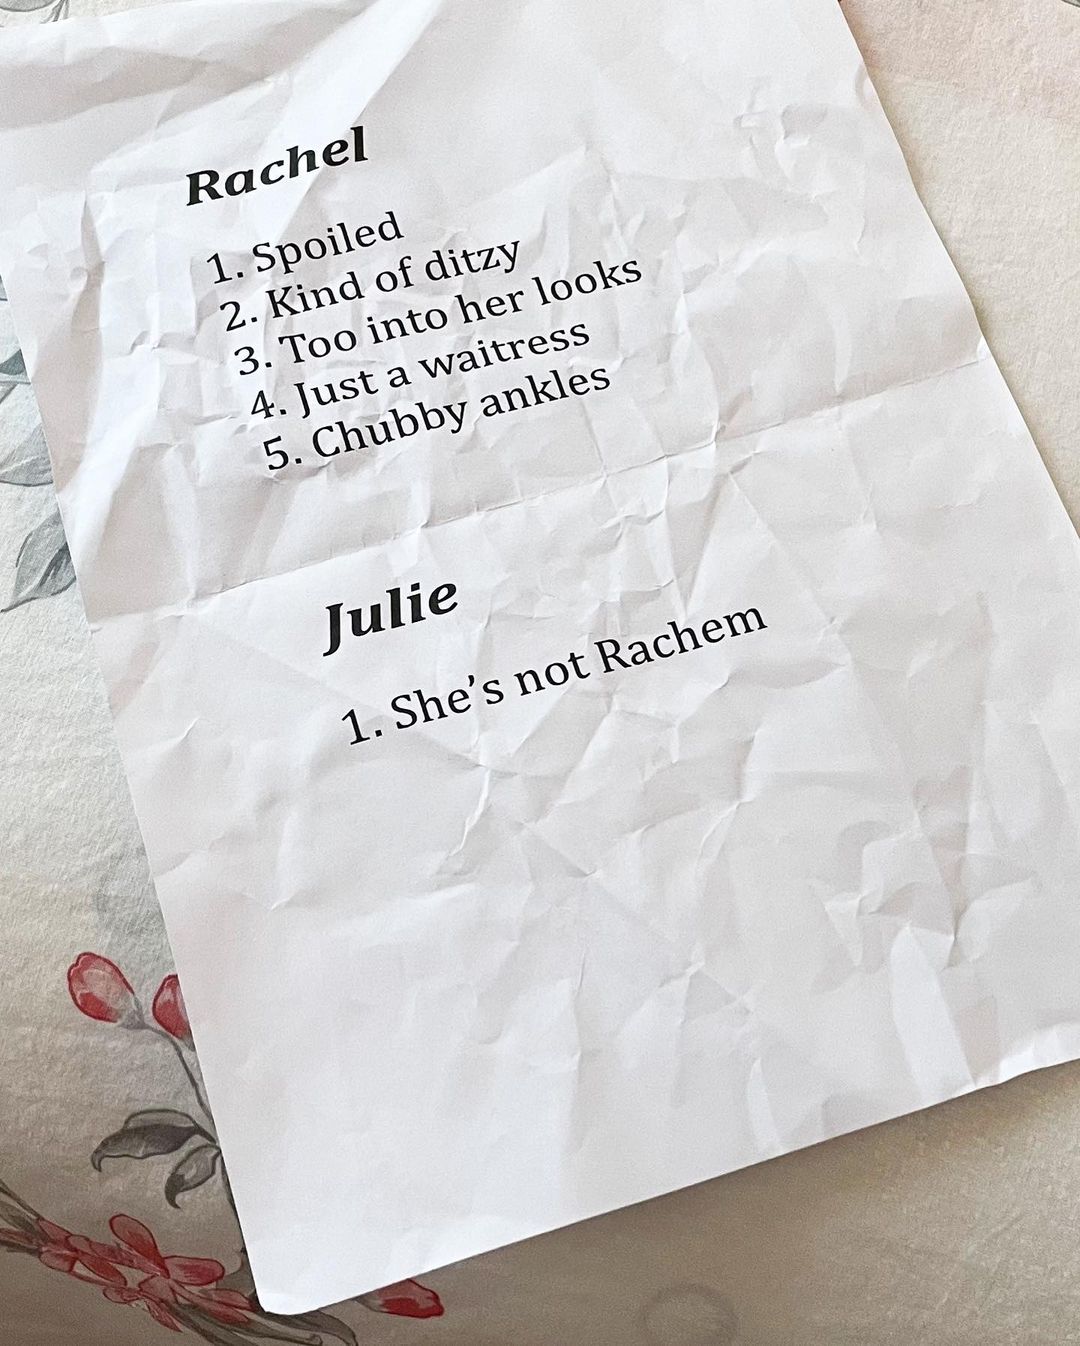 Rachel
1. Spoiled
2. Kind of ditzy
3. Too into her looks
4. Just a waitress
5. Chubby ankles
Julie
1. She's not Rachem